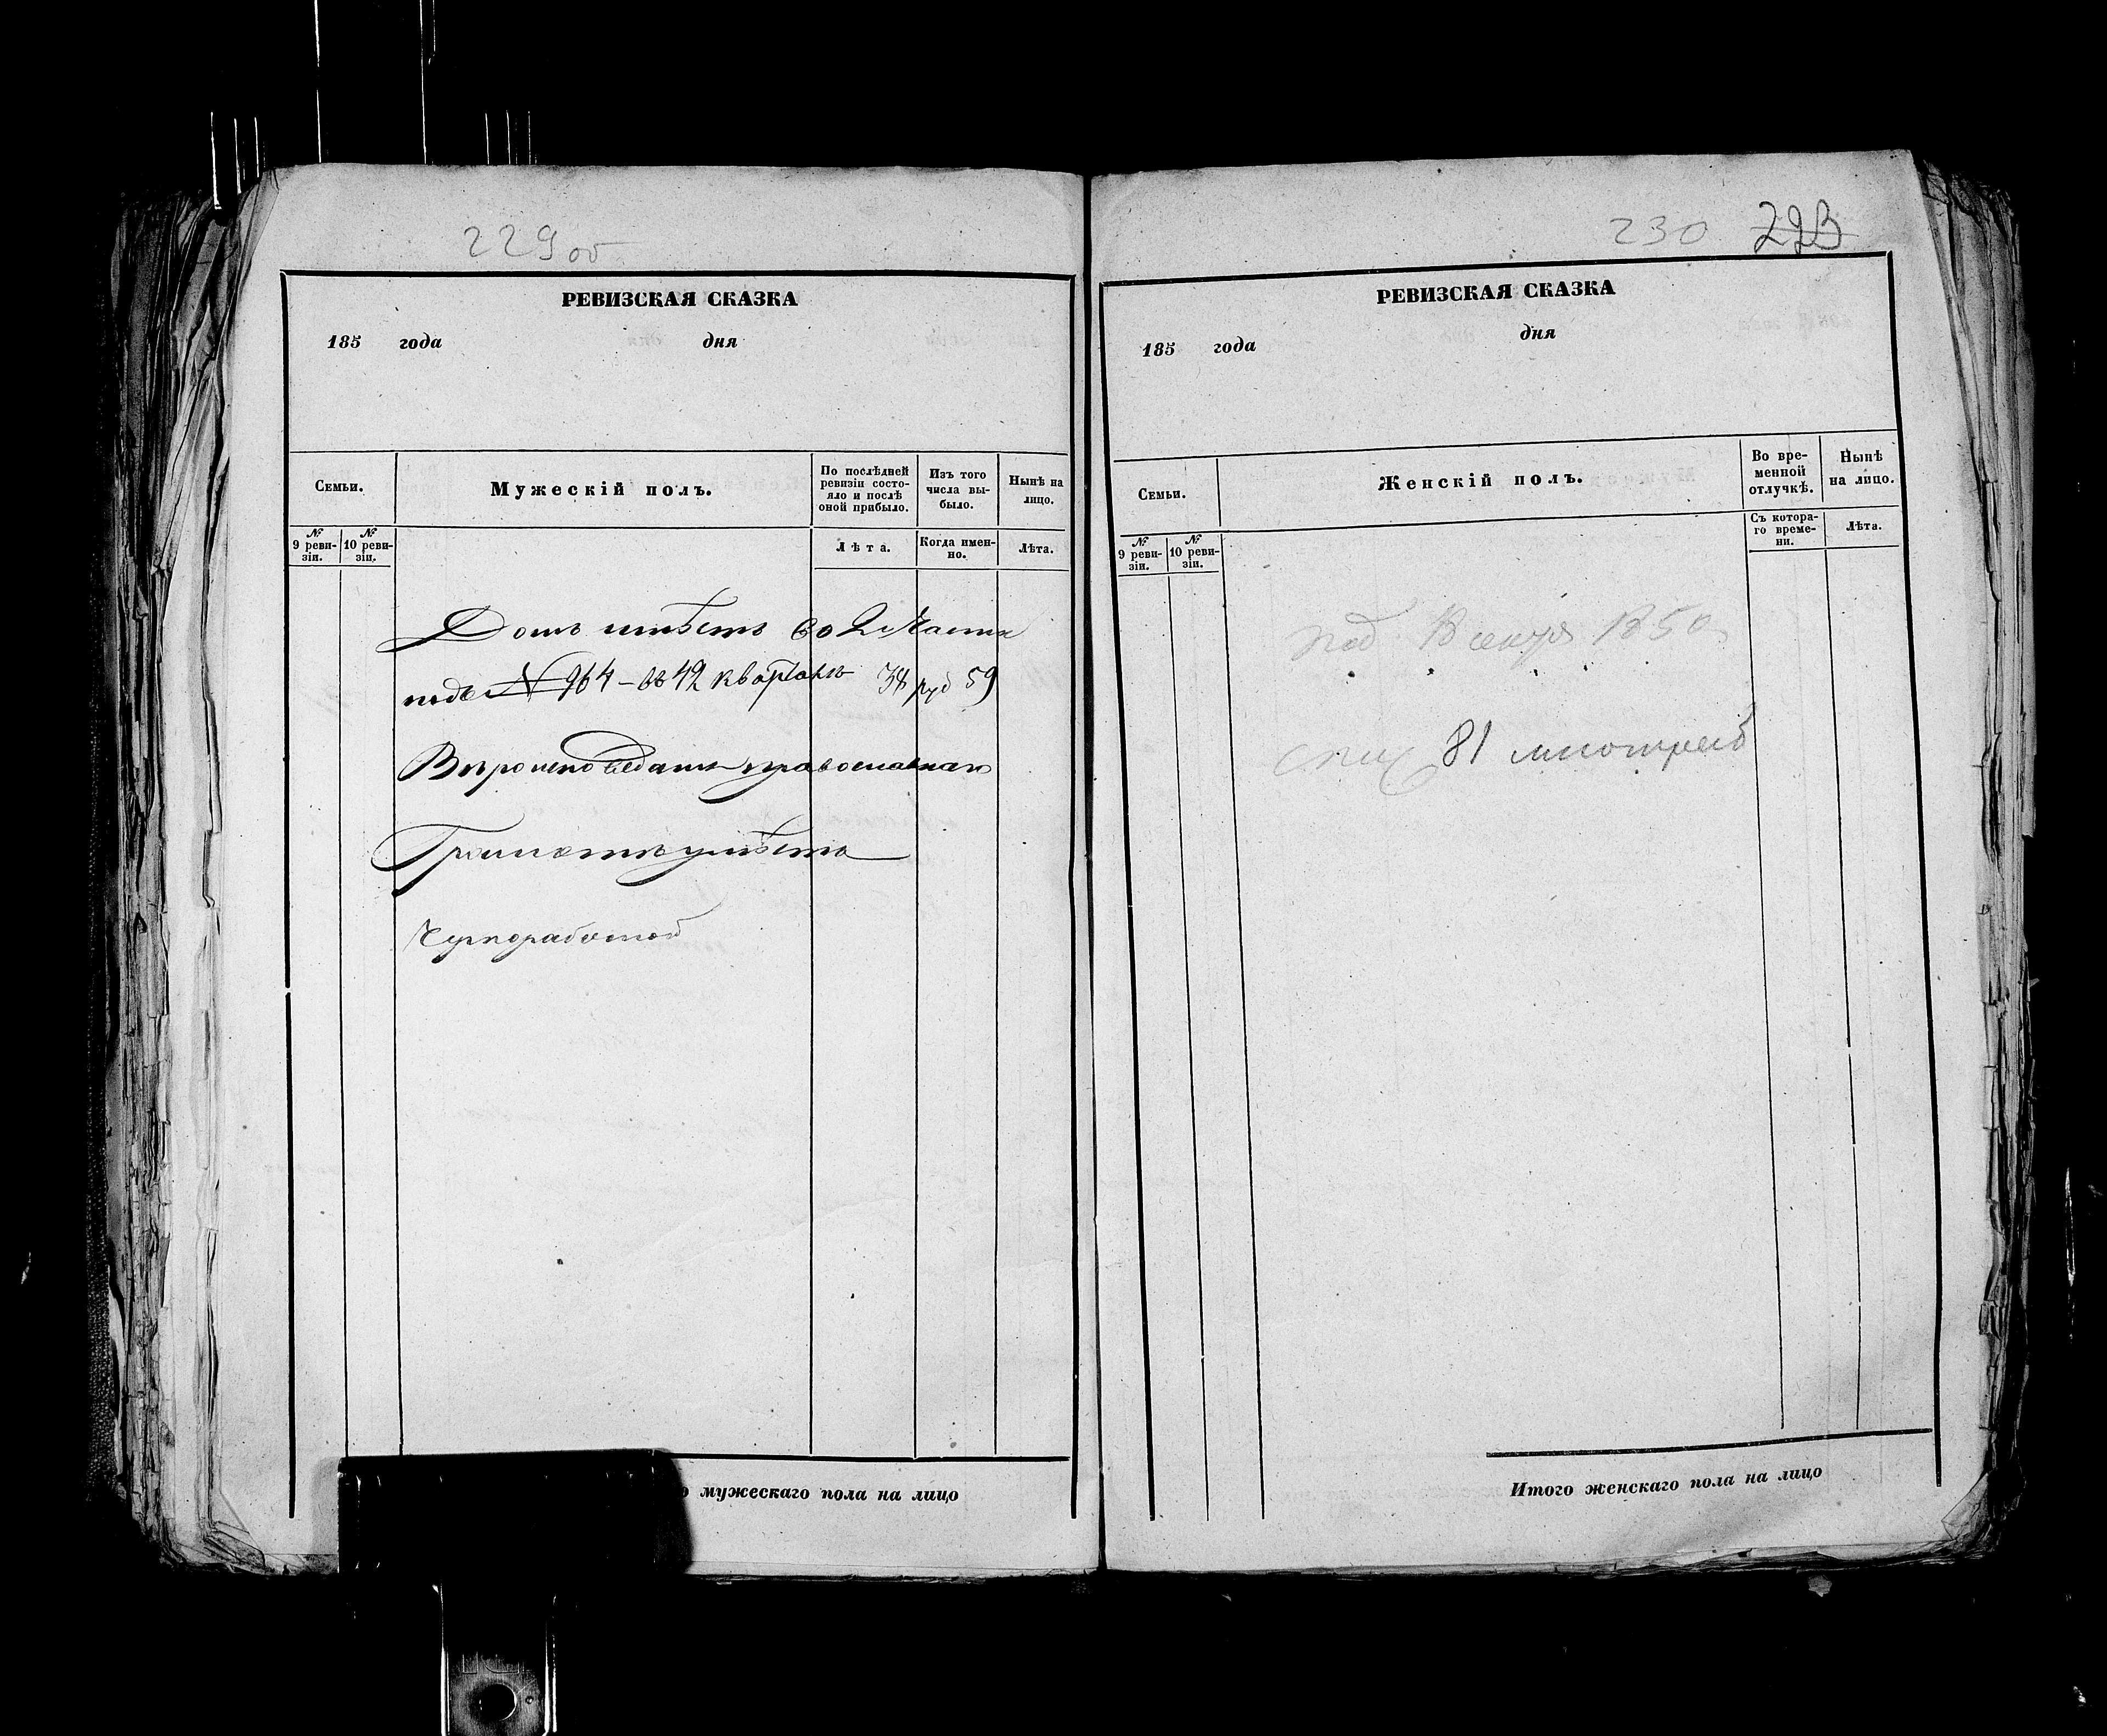 229 об
РЕВИЗСКАЯ СКАЗКА
185 года дня
Семьи.
Мужескій полъ.
По послѣдней ревизіи состояло и послѣ оной прибыло.
Изъ того числа выбыло.
Нынѣ на лицо.
№ 9 ревизіи.
№ 10 ревизіи.
Лѣта.
Когда именно.
Лѣта.
Домъ имѣетъ во 2 Части
подъ № 964 - въ 42 кварталѣ 34 руб 59
Вѣроисповѣданія православнаго
Грамотѣ умѣетъ
Чернорабочей
мужескаго пола на лицо
230 223
РЕВИЗСКАЯ СКАЗКА
185 года дня
Семьи.
Женскій полъ.
Во временной отлучкѣ.
Нынѣ на лицо.
№ 9 ревизіи.
№ 10 ревизіи.
Съ котораго времени.
Лѣта.
1850
81
Итого женскаго пола на лицо